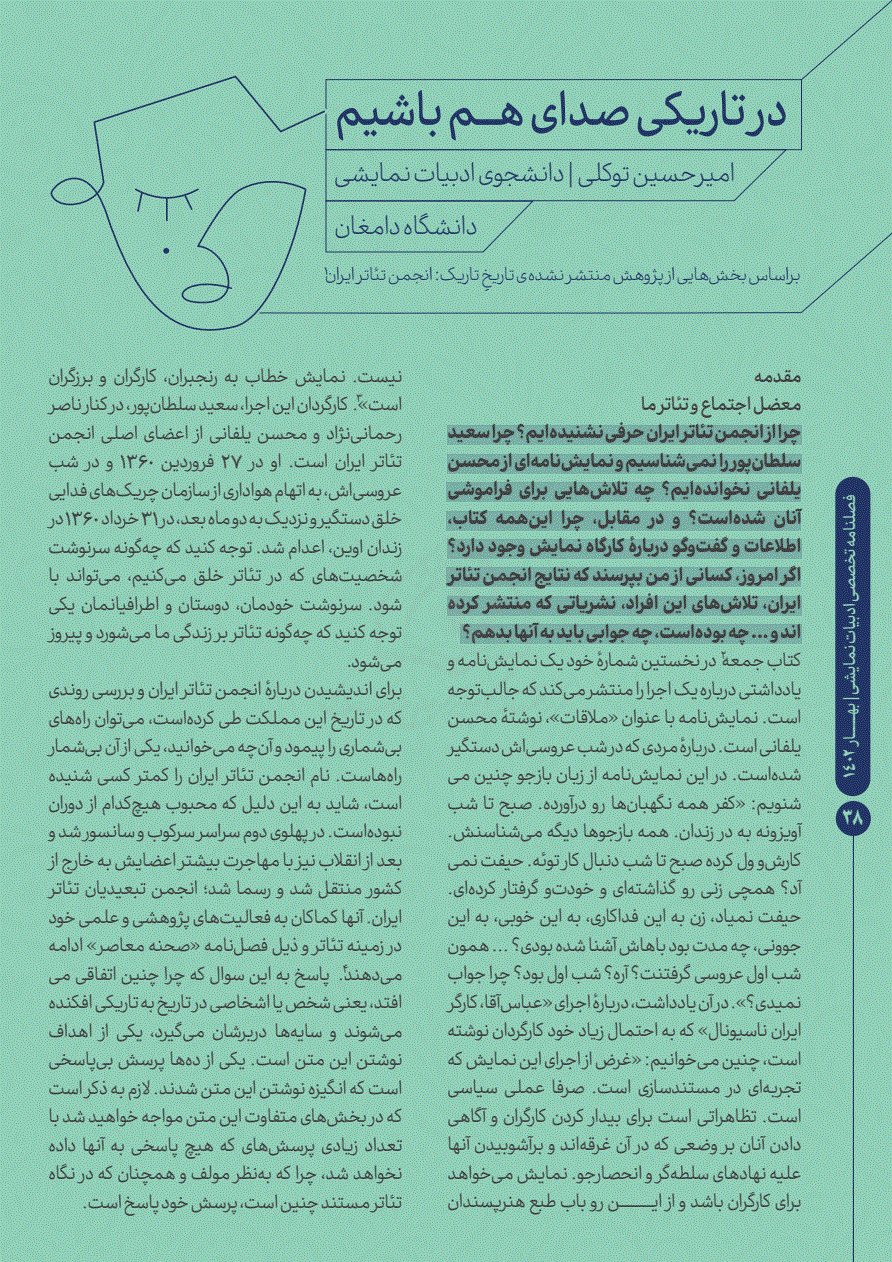 در تاریکی صدای هم باشیم
امیرحسین توکلی | دانشجوی ادبیات نمایشی
دانشگاه دامغان
براساس بخش‌هایی از پژوهش منتشر نشده‌ی تاریخِ تاریک: انجمن تئاتر ایران۱
مقدمه
معضل اجتماع و تئاتر ما
چرا از انجمن تئاتر ایران حرفی نشنیده‌ایم؟ چرا سعید
سلطان‌پور را نمی‌شناسیم و نمایش‌نامه‌ای از محسن
یلفانی نخوانده‌ایم؟ چه تلاش‌هایی برای فراموشی
آنان شده‌است؟ و در مقابل، چرا این‌همه کتاب،
اطلاعات و گفت‌وگو دربارهٔ کارگاه نمایش وجود دارد؟
اگر امروز، کسانی از من بپرسند که نتایج انجمن تئاتر
ایران، تلاش‌های این افراد، نشریاتی که منتشر کرده
اند و ... چه بوده‌است، چه جوابی باید به آنها بدهم؟
کتاب جمعه۲ در نخستین شمارهٔ خود یک نمایش‌نامه و
یادداشتی درباره یک اجرا را منتشر می‌کند که جالب‌توجه
است. نمایش‌نامه با عنوان «ملاقات»، نوشتهٔ محسن
یلفانی است. دربارهٔ مردی که در شب عروسی‌اش دستگیر
شده‌است. در این نمایش‌نامه از زبان بازجو چنین می
شنویم: «کفر همه نگهبان‌ها رو درآورده. صبح تا شب
آویزونه به در زندان. همه بازجوها دیگه می‌شناسنش.
کارش‌و ول کرده صبح تا شب دنبال کار توئه. حیفت نمی
آد؟ همچی زنی رو گذاشته‌ای و خودت‌و گرفتار کرده‌ای.
حیفت نمیاد، زن به این فداکاری، به این خوبی، به این
جوونی، چه مدت بود باهاش آشنا شده بودی؟ ... همون
شب اول عروسی گرفتنت؟ آره؟ شب اول بود؟ چرا جواب
نمیدی؟». در آن یادداشت، دربارهٔ اجرای «عباس‌آقا، کارگر
ایران ناسیونال» که به احتمال زیاد خود کارگردان نوشته
است، چنین می‌خوانیم: «غرض از اجرای این نمایش که
تجربه‌ای در مستندسازی است. صرفا عملی سیاسی
است. تظاهراتی است برای بیدار کردن کارگران و آگاهی
دادن آنان بر وضعی که در آن غرقه‌اند و برآشوبیدن آنها
علیه نهادهای سلطه‌گر و انحصارجو. نمایش می‌خواهد
برای کارگران باشد و از ایـــن رو باب طبع هنرپسندان
نیست. نمایش خطاب به رنجبران، کارگران و برزگران
است»۳. کارگردان این اجرا، سعید سلطان‌پور، در کنار ناصر
رحمانی‌نژاد و محسن یلفانی از اعضای اصلی انجمن
تئاتر ایران است. او در ۲۷ فروردین ۱۳۶۰ و در شب
عروسی‌اش، به اتهام هواداری از سازمان چریک‌های فدایی
خلق دستگیر و نزدیک به دو ماه بعد، در ۳۱ خرداد ۱۳۶۰ در
زندان اوین، اعدام شد. توجه کنید که چه‌گونه سرنوشت
شخصیت‌های که در تئاتر خلق می‌کنیم، می‌تواند با
سرنوشت خودمان، دوستان و اطرافیانمان یکی شود.
توجه کنید که چه‌گونه تئاتر بر زندگی ما می‌شورد و پیروز
می‌شود.
برای اندیشیدن دربارهٔ انجمن تئاتر ایران و بررسی روندی
که در تاریخ این مملکت طی کرده‌است، می‌توان راه‌های
بی‌شماری را پیمود و آن‌چه می‌خوانید، یکی از آن بی‌شمار
راه‌هاست. نام انجمن تئاتر ایران را کمتر کسی شنیده
است، شاید به این دلیل که محبوب هیچ‌کدام از دوران
نبوده‌است. در پهلوی دوم سراسر سرکوب و سانسور شد و
بعد از انقلاب نیز با مهاجرت بیشتر اعضایش به خارج از
کشور منتقل شد و رسما شد؛ انجمن تبعدیان تئاتر
ایران. آنها کماکان به فعالیت‌های پژوهشی و علمی خود
در زمینه تئاتر و ذیل فصل‌نامه «صحنه معاصر» ادامه
می‌دهند۴. پاسخ به این سوال که چرا چنین اتفاقی می
افتد، یعنی شخص یا اشخاصی در تاریخ به تاریکی افکنده
می‌شوند و سایه‌ها دربرشان می‌گیرد، یکی از اهداف
نوشتن این متن است. یکی از ده‌ها پرسش بی‌پاسخی
است که انگیزه نوشتن این متن شدند. لازم به ذکر است
که در بخش‌های متفاوت این متن مواجه خواهید شد با
تعداد زیادی پرسش‌های که هیچ پاسخی به آنها داده
نخواهد شد، چرا که به‌نظر مولف و همچنان که در نگاه
تئاتر مستند چنین است، پرسش خود پاسخ است.
فصلنامه تخصصی ادبیات نمایشی | بهـــار ۱۴۰۲
۳۸